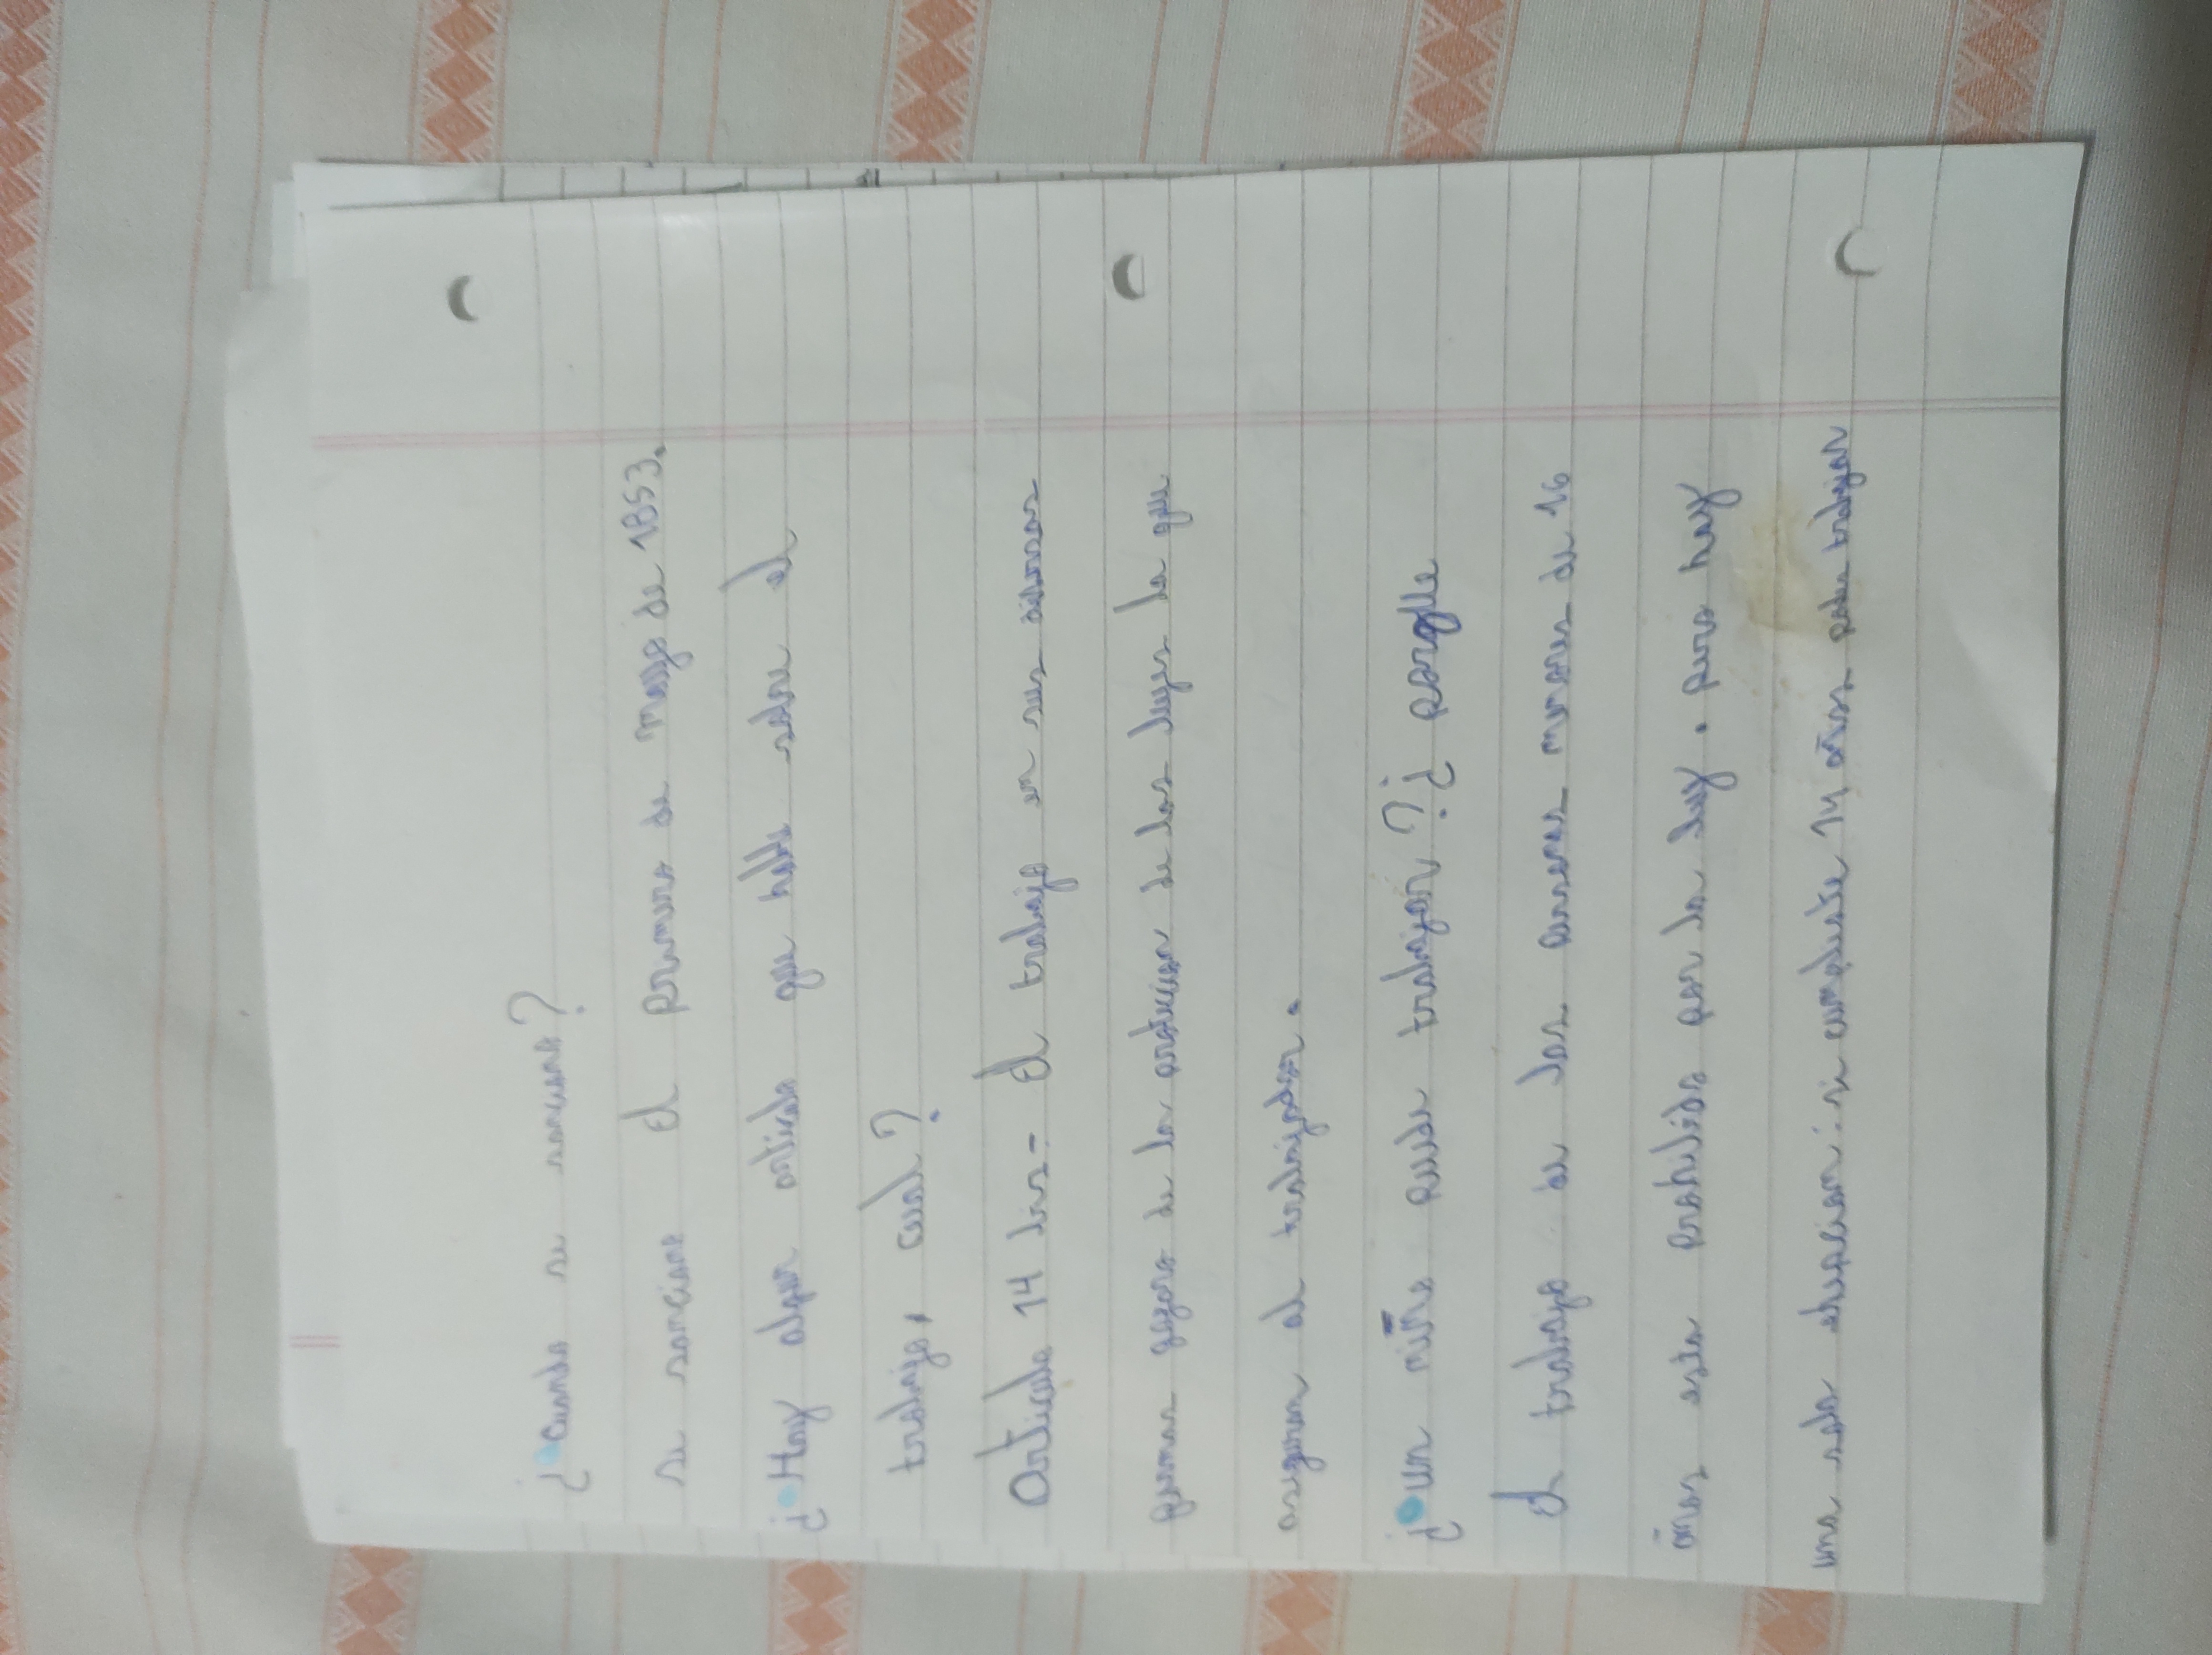 ¿Cuando se sanciono?
se sanciono El primero de mayo de 1853.
¿Hay algun articulo que hable sobre el
trabajo, cual?
Articulo 14 bis- El trabajo en sus diversas
formas gozara de la de las leyes la que
aseguran al trabajador.
¿un niño puede trabajar? ¿porqUe
El trabajo de las personas menores de 16
años esta Prohibido por la ley. pero hay
una sola si cumpliste 14 años podes trabajar